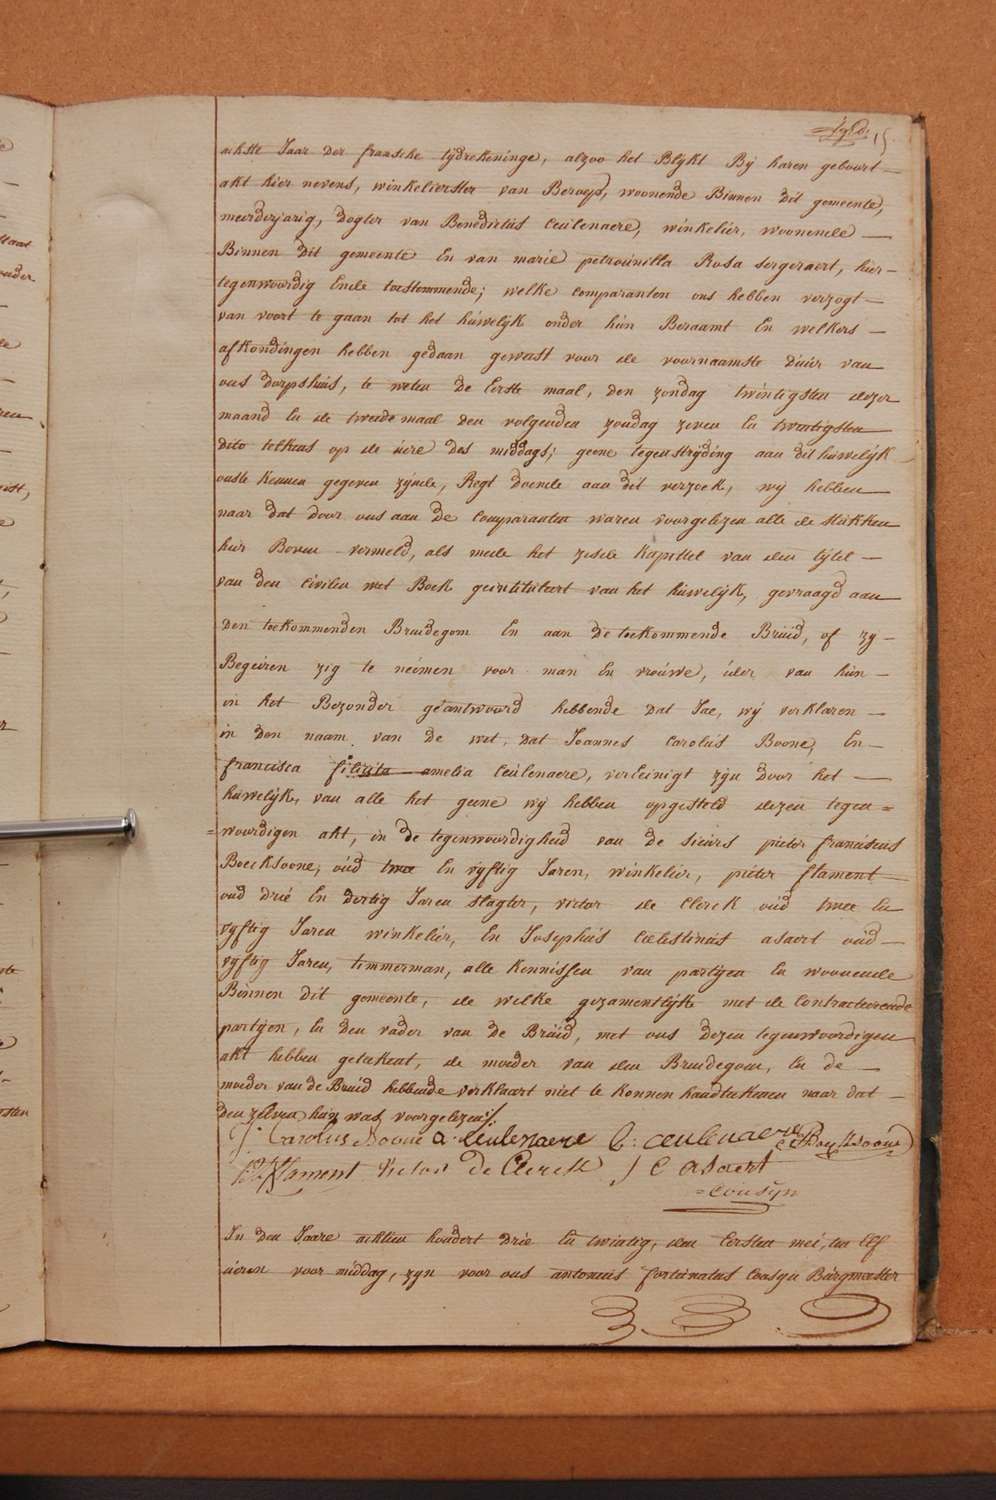 15.
achste Jaar der fransche tijdrekeninge, alzoo het Blijkt Bij haren geboort-
akt hier nevens, winkelierster van Beroep, woonende Binnen dit gemeente,
meerderjarig, dogter van Benedictus Ceulenaere, winkelier, woonende
Binnen dit gemeente En van marie petrounilla Rosa sergeraert, hier-
tegenwoordig Ende toestemmende; welke comparanten ons hebben verzogt
van voort te gaan tot het húwelijk onder hún Beraamt En welkers
afkondingen hebben gedaan geweest voor de voornaamste dúúr van
ons dorpshúis, te weten de Eerste maal, den zondag twintigsten dezer
maand En de tweede maal den volgenden zondag zeven En twentigsten
dito telkens op de úere des middags; geene tegenstrijding aan dit húwelijk
onste kennen gegeven zijnde, Regt doende aan dit verzoek, wij hebben
naar dat door ons aan de comparanten waren voorgelezen alle de stúkken
hier Boven vermeld, als mede het zesde kapittel van den tijtel
van den civilen wet Boek geintituleert van het húwelijk, gevraagd aan
den toekommenden Bruidegom En aan de toekommende Brúid, of zy
Begeiren zig te neimen voor man En vrouwe, ider van hún
in het Bezonder geäntwoord hebbende dat Jae, wij verklaren
in den naam van de wet, dat Joannes Carolús Boone, En
francisca filicita amelia Ceúlenaere, vereinigt zijn door het
húwelijk, van alle het geene wij hebben opgesteld dezen tegen=
=woordigen akt, in de tegenwoordigheid van de sieúrs pieter franciscus
Boecksoone, oúd twee En vijftig Jaren, winkeliér, piéter flament
oud drié En dertig Jaren slagter, victor de Clerck oúd twee En
vyftig Jaren winkeliér, En Josephús Cælestinús asaert oúd
vyftig Jaren, timmerman, alle kennissen van partijen En woonende
Binnen dit gemeente, de welke gezamentlijk met de Contracteerende
partijen, En den vader van de Brúid, met ons dezen tegenwoordigen
akt hebben geteekent, de moeder van den Bruidegom, En de
moeder van de Bruid hebbende verklaert niet te konnen handteekenen naar dat
den zelven hún was voorgelezen
J. Carolus Boone a. Ceulenaere b. ceulenaere
flament Victor De Clerck J C asaert
=Cousyn
In den Jaare achtien hondert drie En twintig, den Eersten mei, ten Elf
úeren voor middag, zyn voor ons antonius fortúnatus Cousyn Búrgmeester